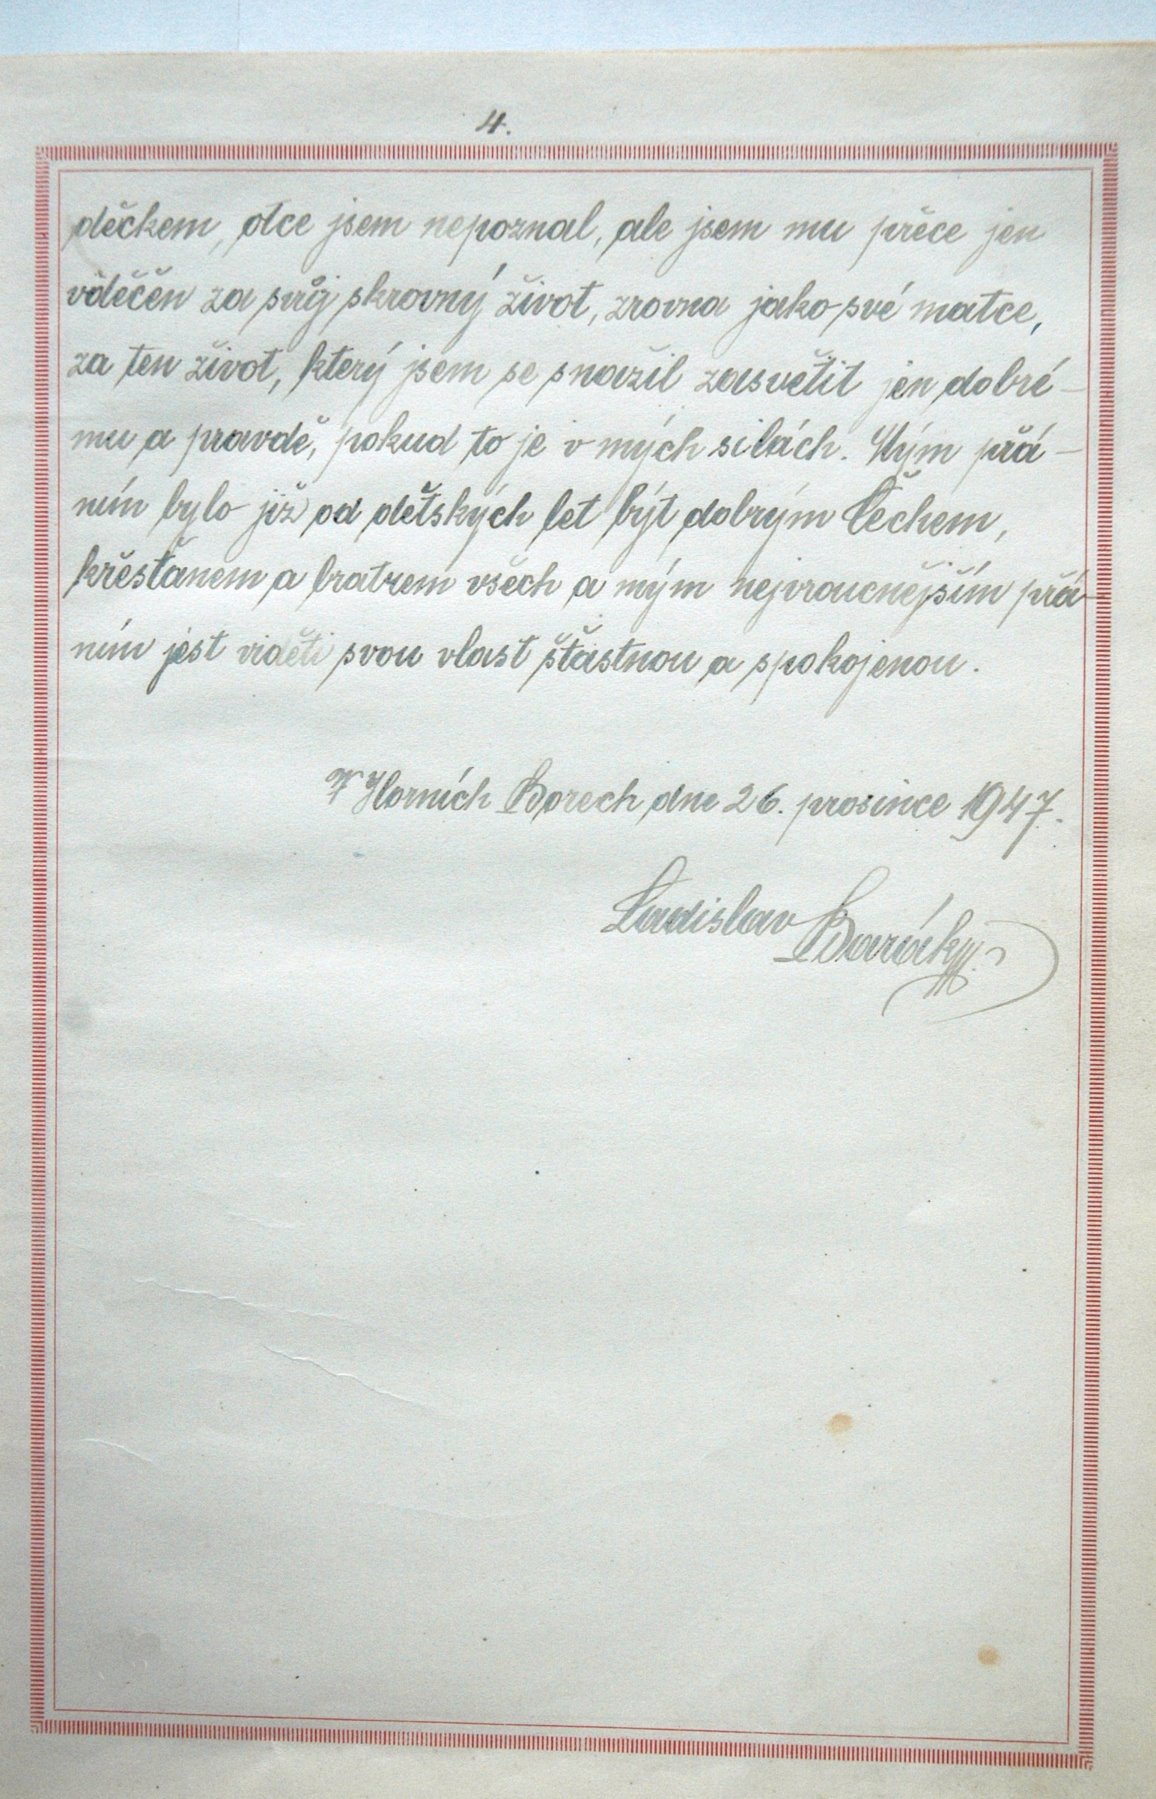 4.
děčkem, otce jsem nepoznal, ale jsem mu přece jen
vděčěn za svůj skrovný život, zrovna jako své matce,
za ten život, který jsem se snažil zasvětit jen dobré-
mu a pravdě, pokud to je v mých silách. Mým přá-
ním bylo již od dětských let být dobrým Čechem,
křesťanem a bratrem všech a mým nejvroucnějším přá-
ním jest viděti svou vlast šťastnou a spokojenou.
V Horních Borech dne 26. prosince 1947.
Ladislav Borácký